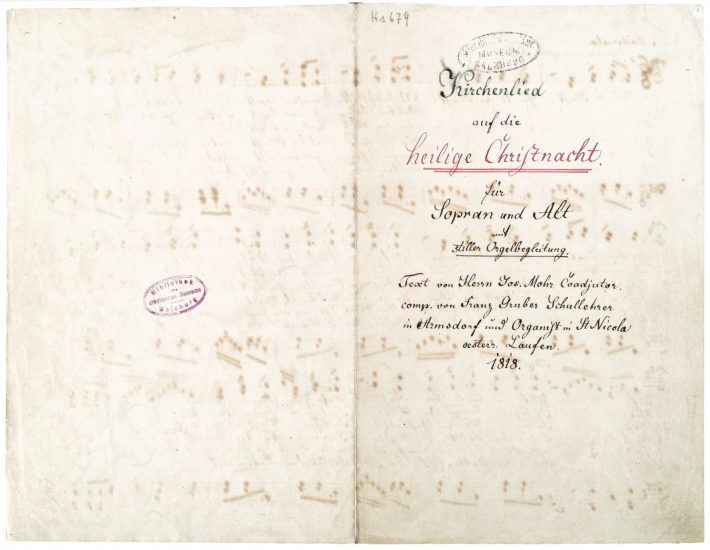 Hs 679
MUSEUM
SALZBURG
Kirchenlied
auf die
heilige Christnacht.
für
Sopran und Alt
mit
stiller Orgelbegleitung.
Text von Herrn Jos. Mohr Coadjutor.
comp. von Franz Gruber Schullehrer
in Arnsdorf und Organist in St Nicola
oesterr. Laufen.
1818.
Bibliothek
des
städtischen Museums
Salzburg